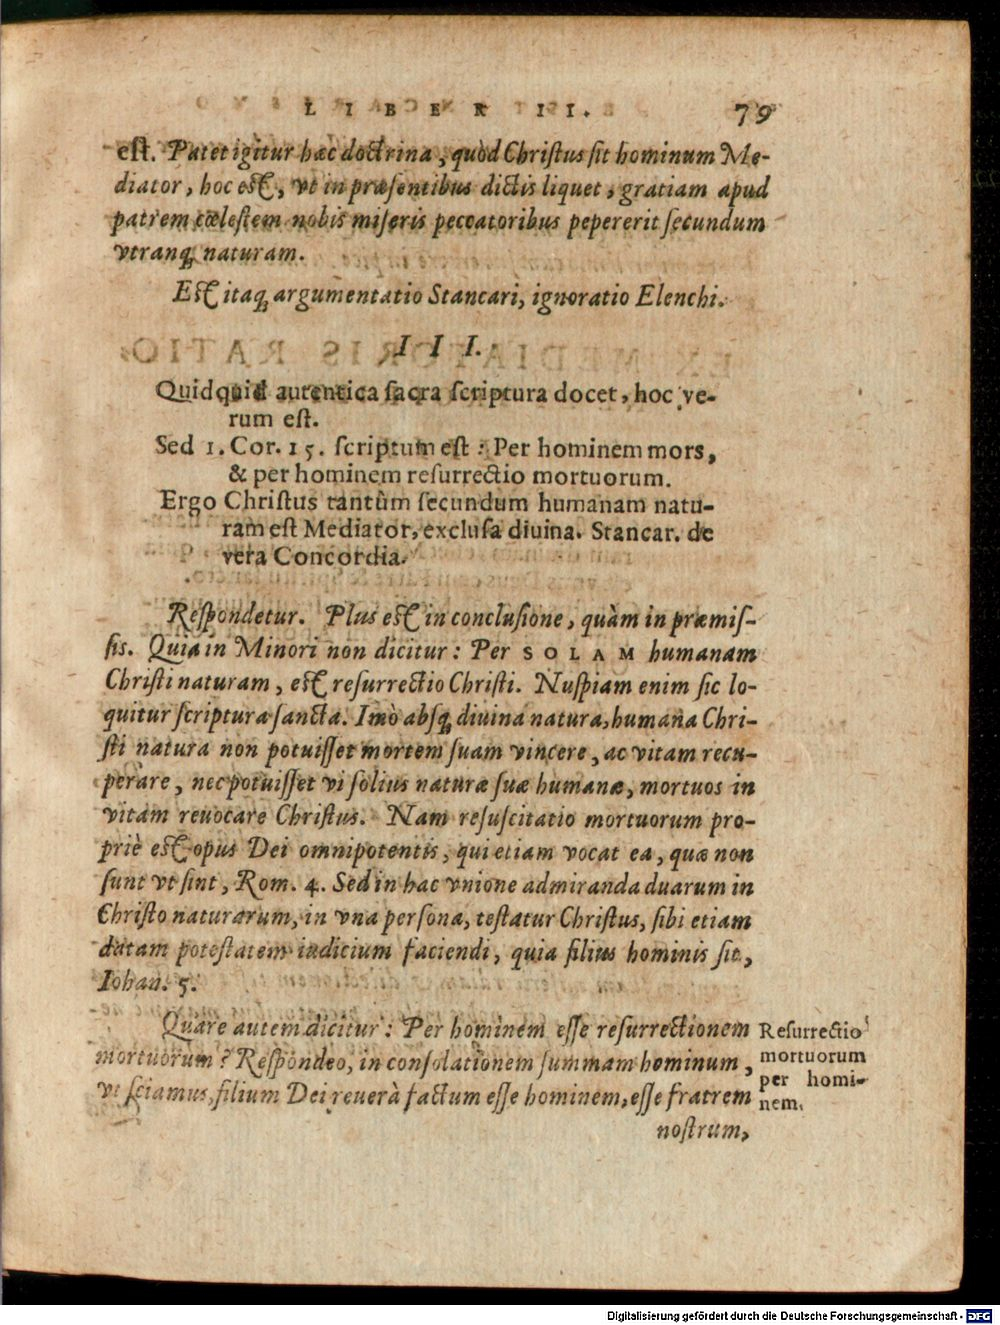 LIBER II. 79
est. Patet igitur hæc doctrina, quòd Christus sit hominum Me-
diator, hoc est, vt in præsentibus dictis liquet, gratiam apud
patrem cœlestem nobis miseris peccatoribus pepererit secundum
vtranq; naturam.
Est itaq; argumentatio Stancari, ignoratio Elenchi.
III.
Quidquid autentica sacra scriptura docet, hoc ve-
rum est.
Sed 1. Cor. 15. scriptum est: Per hominem mors,
& per hominem resurrectio mortuorum.
Ergo Christus tantùm secundum humanam natu-
ram est Mediator, exclusa diuina. Stancar. de
vera Concordia.
Respondetur. Plus est in conclusione, quàm in præmis-
sis. Quia in Minori non dicitur: Per SOLAM humanam
Christi naturam, est resurrectio Christi. Nuspiam enim sic lo-
quitur scriptura sancta. Imò absq; diuina natura, humana Chri-
sti natura non potuisset mortem suam vincere, ac vitam recu-
perare, nec potuisset vi solius naturæ suæ humanæ, mortuos in
vitam reuocare Christus. Nam resuscitatio mortuorum pro-
priè est opus Dei omnipotentis, qui etiam vocat ea, quæ non
sunt vt sint, Rom. 4. Sed in hac vnione admiranda duarum in
Christo naturarum, in vna persona, testatur Christus, sibi etiam
datam potestatem iudicium faciendi, quia filius hominis sit,
Iohan. 5.
Quare autem dicitur: Per hominem esse resurrectionem
mortuorum? Respondeo, in consolationem summam hominum,
vt sciamus, filium Dei reuerà factum esse hominem, esse fratrem
nostrum,
Resurrectio
mortuorum
per homi-
nem.
Digitalisierung gefördert durch die Deutsche Forschungsgemeinschaft - DFG